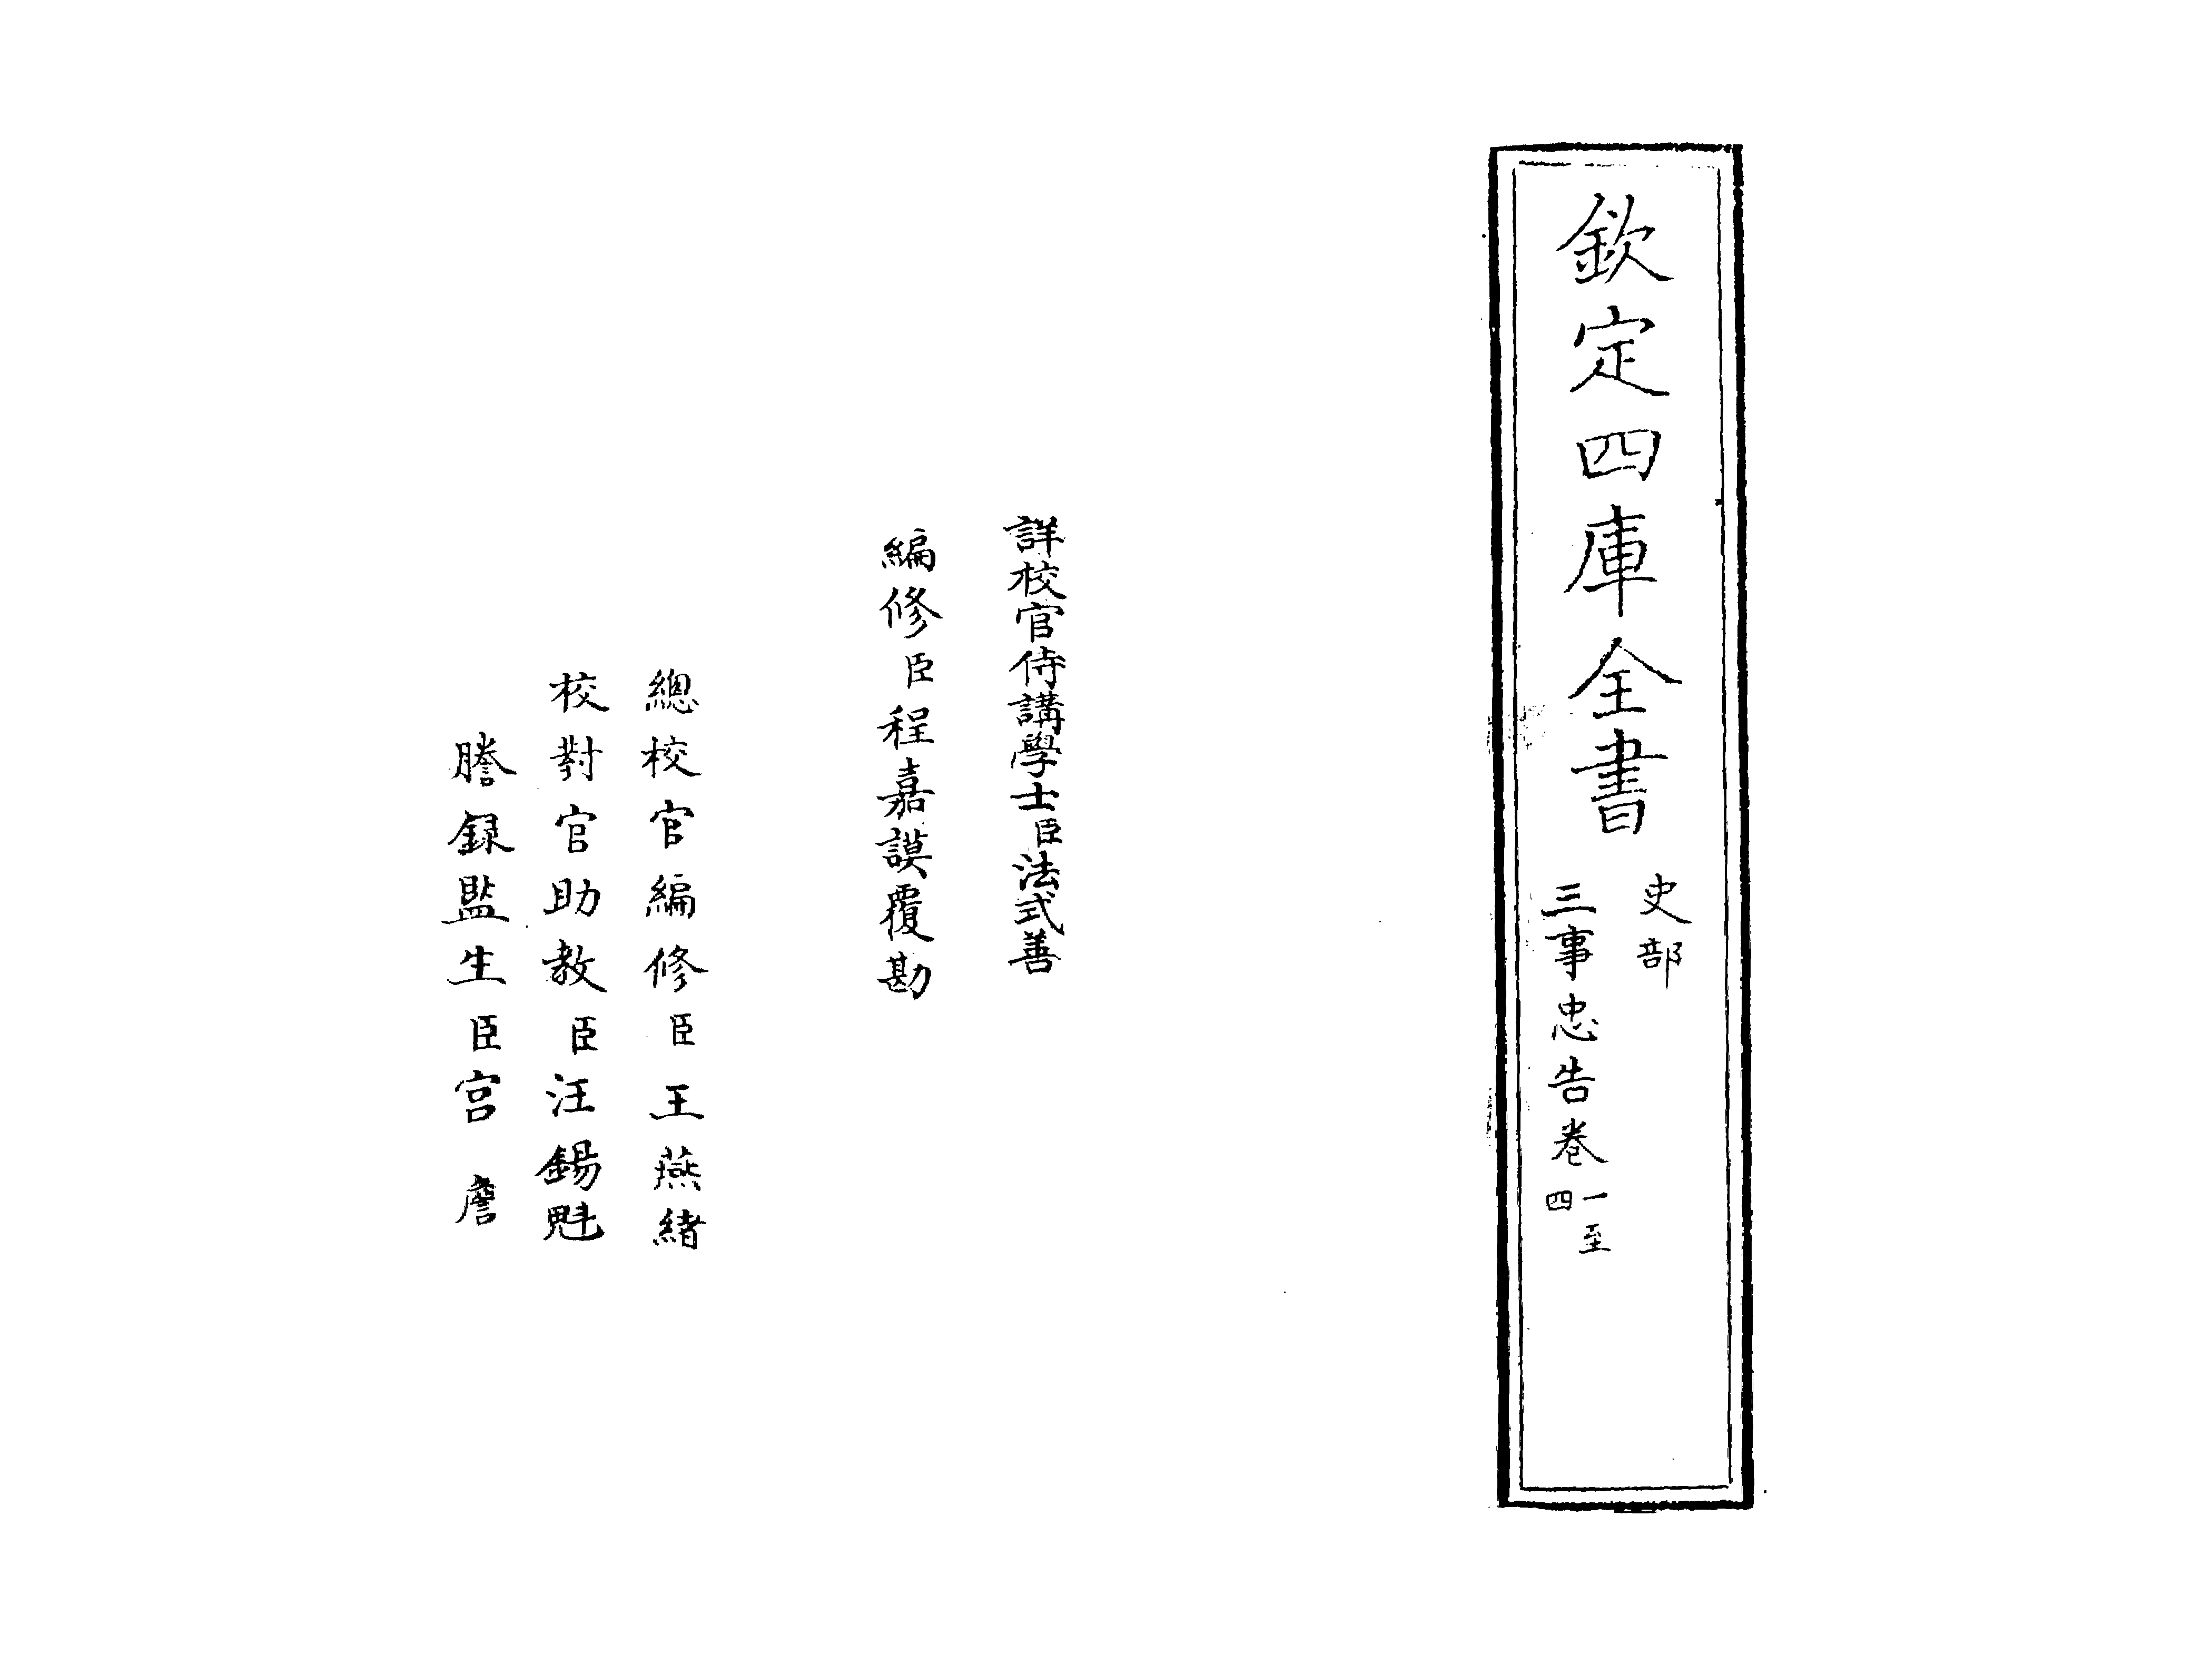 欽定四庫全書
史部
三事忠告卷一至四
詳校官侍講學士臣法式善
編修臣程嘉謨覆勘
總校官編修臣王燕緒
校對官助教臣汪錫魁
謄録監生臣宫詹